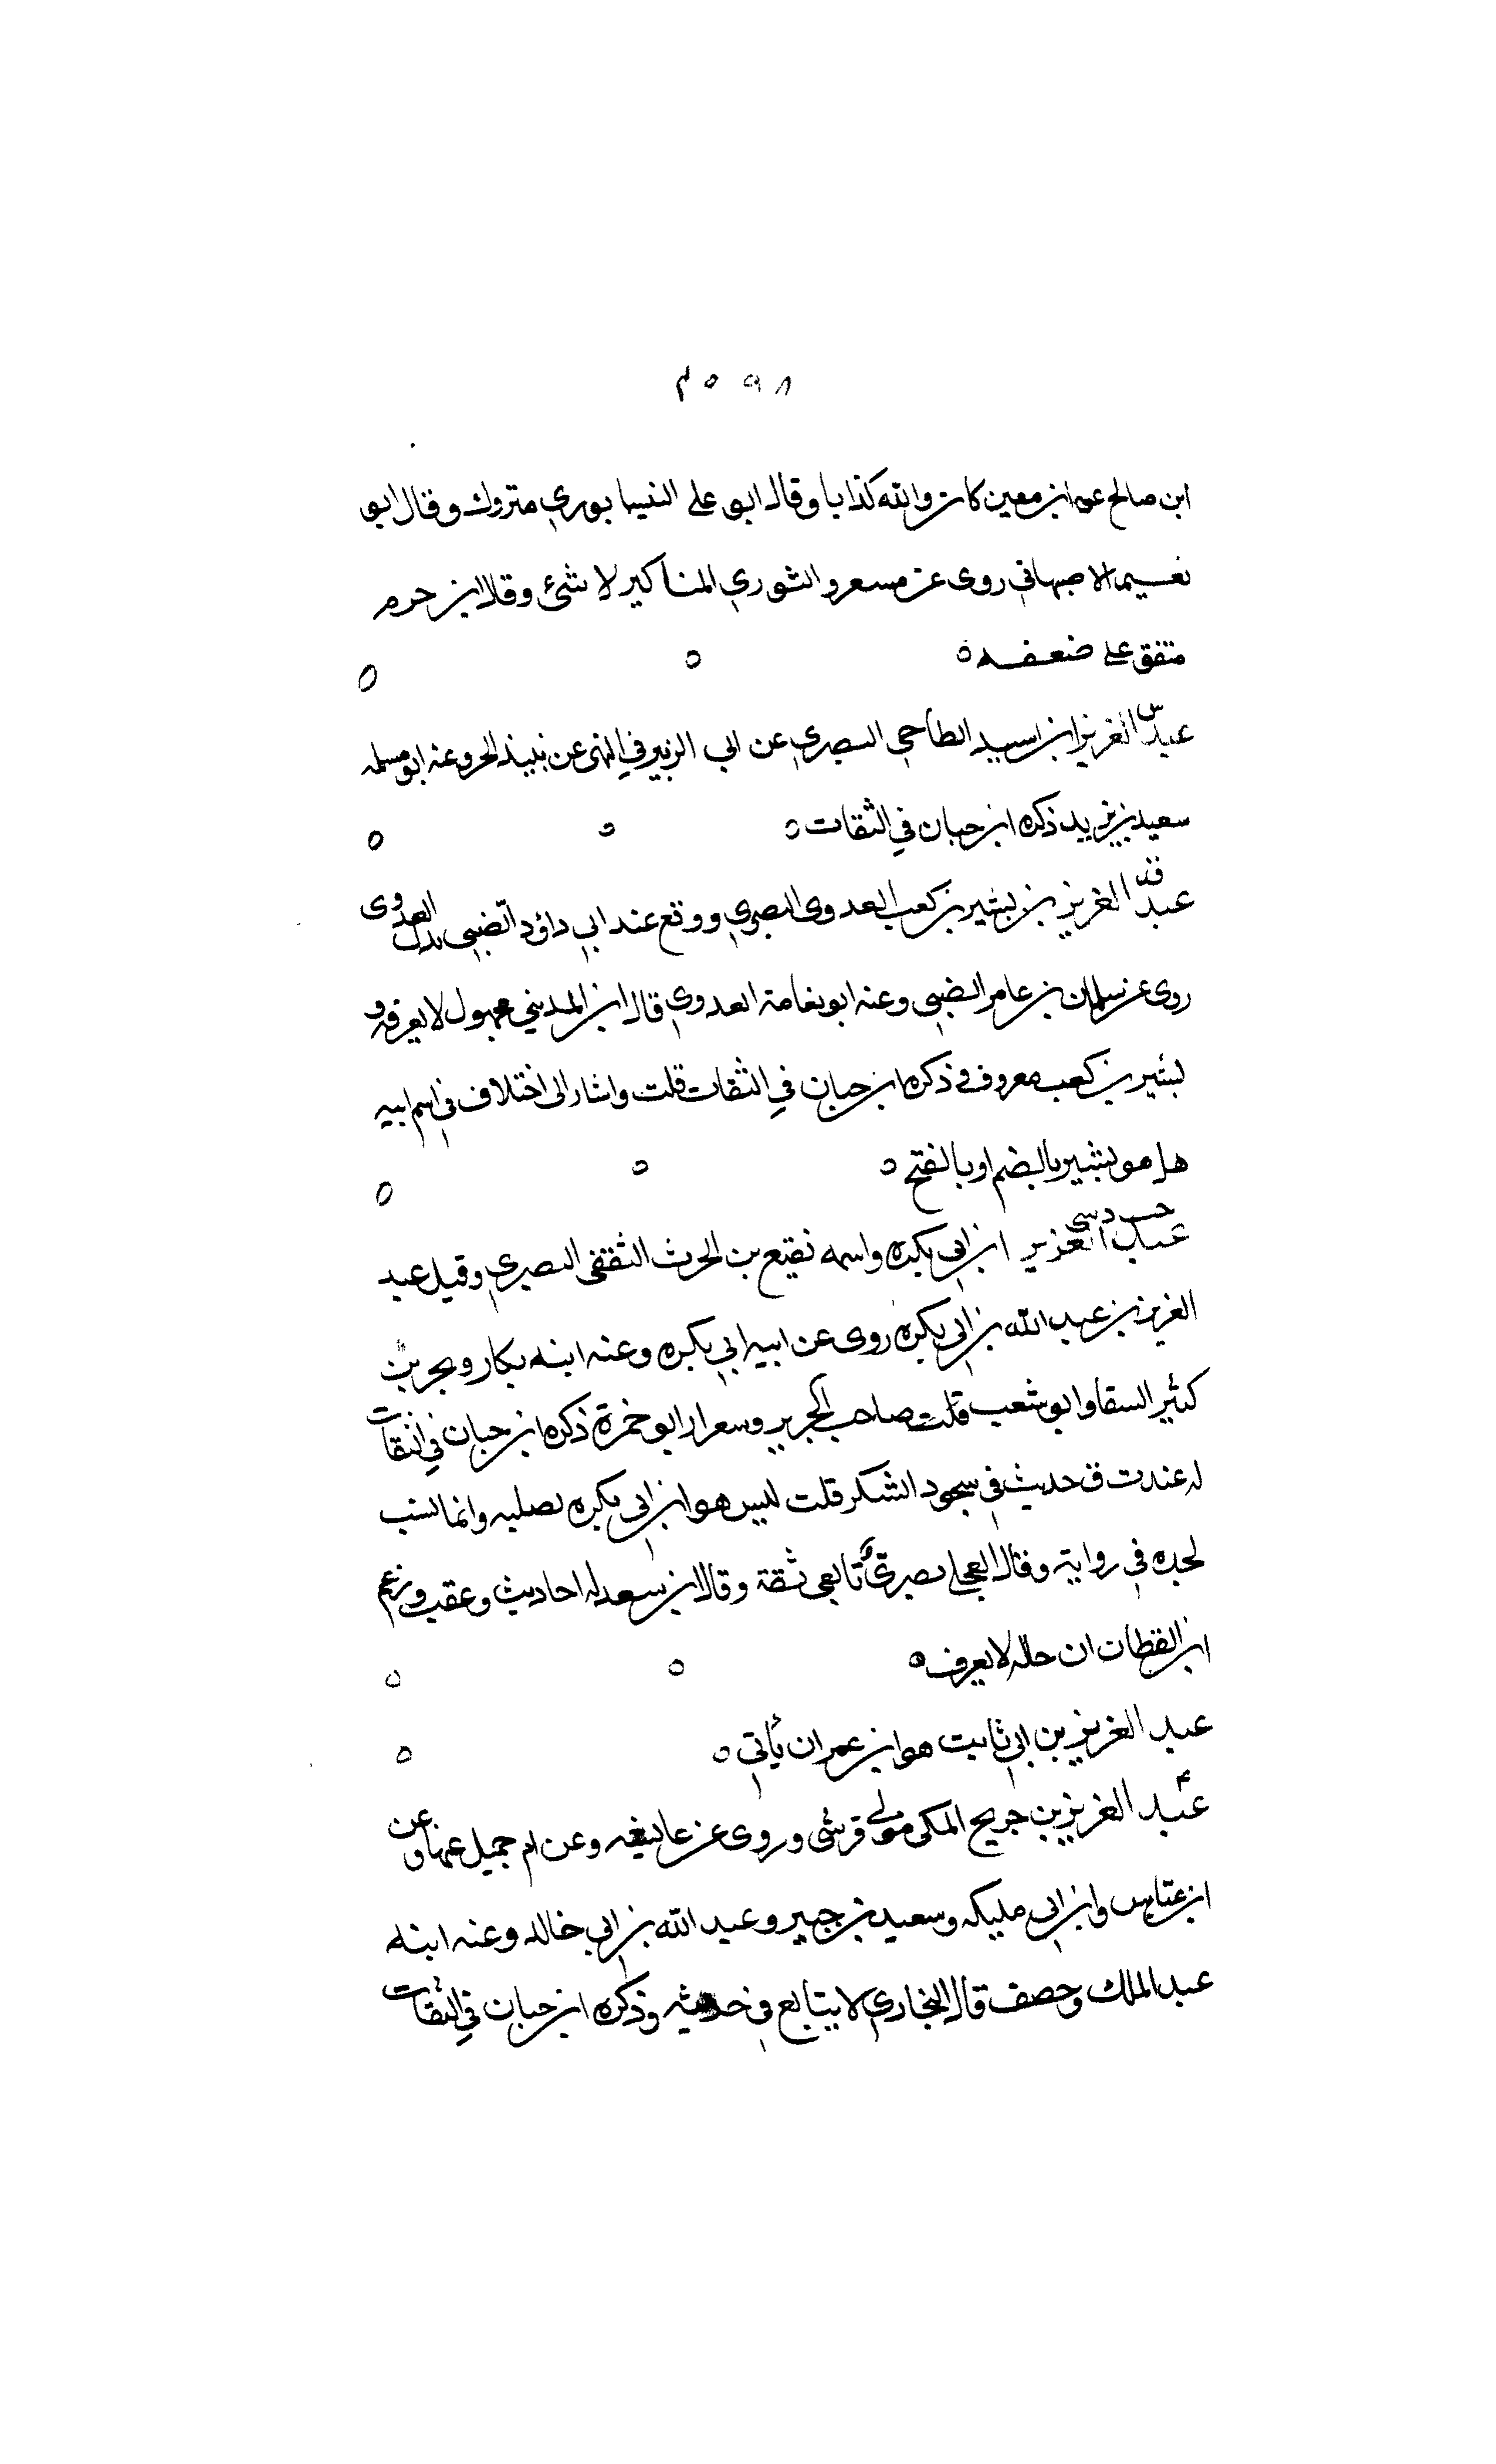 ابن صالح عن ابن معين كان والله كذابا وقال ابو على النيسابوري متروك وقال ابو
نعيم الاصبهاني روى عن مسعر والثوري المناكير لا شئ وقال ابن حزم
متفق على ضعفه
س
عبد العزيز ابن اسيد الطاحي البصري عن ابي الزبير في النهى عن نبيذ الجر وعنه ابو مسلمه
سعيد بن يزيد ذكره ابن حبان في الثقات
عبد العزيز بن بشير بن كعب العدوى البصري ووقع عند ابي داؤد الضبي بدل العدوى
روى عن سلمان بن عامر الضبي وعنه ابو نعامة العدوي قال ابن المديني مجهول لا يعرف و
بشير بن كعب معروف وذكره ابن حبان في الثقات قلت واشار الى اختلاف في اسم ابيه
هل هو بشير بالضم او بالفتح
عبد العزيز ابن ابي بكره واسمه نفيع بن الحرث الثقفي البصري وقيل عبد
العزيز بن عبد الله بن ابي بكره روى عن ابيه ابي بكره وعنه ابنه بكار وبحر بن
كثير السقا وابو شعب قلت صاحب الجرير وسعرار ابو حمزة ذكره ابن حبان في الثقات
له عند ت ق حديث في سجود الشكر قلت ليس هو ابن ابي بكره لصلبه وانما نسب
لجده في رواية وقال العجلي بصري تابعي ثقة وقال ابن سعد له احاديث وعقب وزعم
ابن القطان ان حاله لا يعرف
عبد العزيز بن ابي ثابت هو ابن عمران يأتي
عبد العزيز بن جريج المكي مولى قرشي وروى عن عايشه وعن ام جميل عنها وعن
ابن عباس وابن ابي مليكه وسعيد بن جبير وعبد الله بن ابي خالد وعنه ابنه
عبد الملك وخصف قال البخاري لا يتابع في حديثه وذكره ابن حبان في الثقات